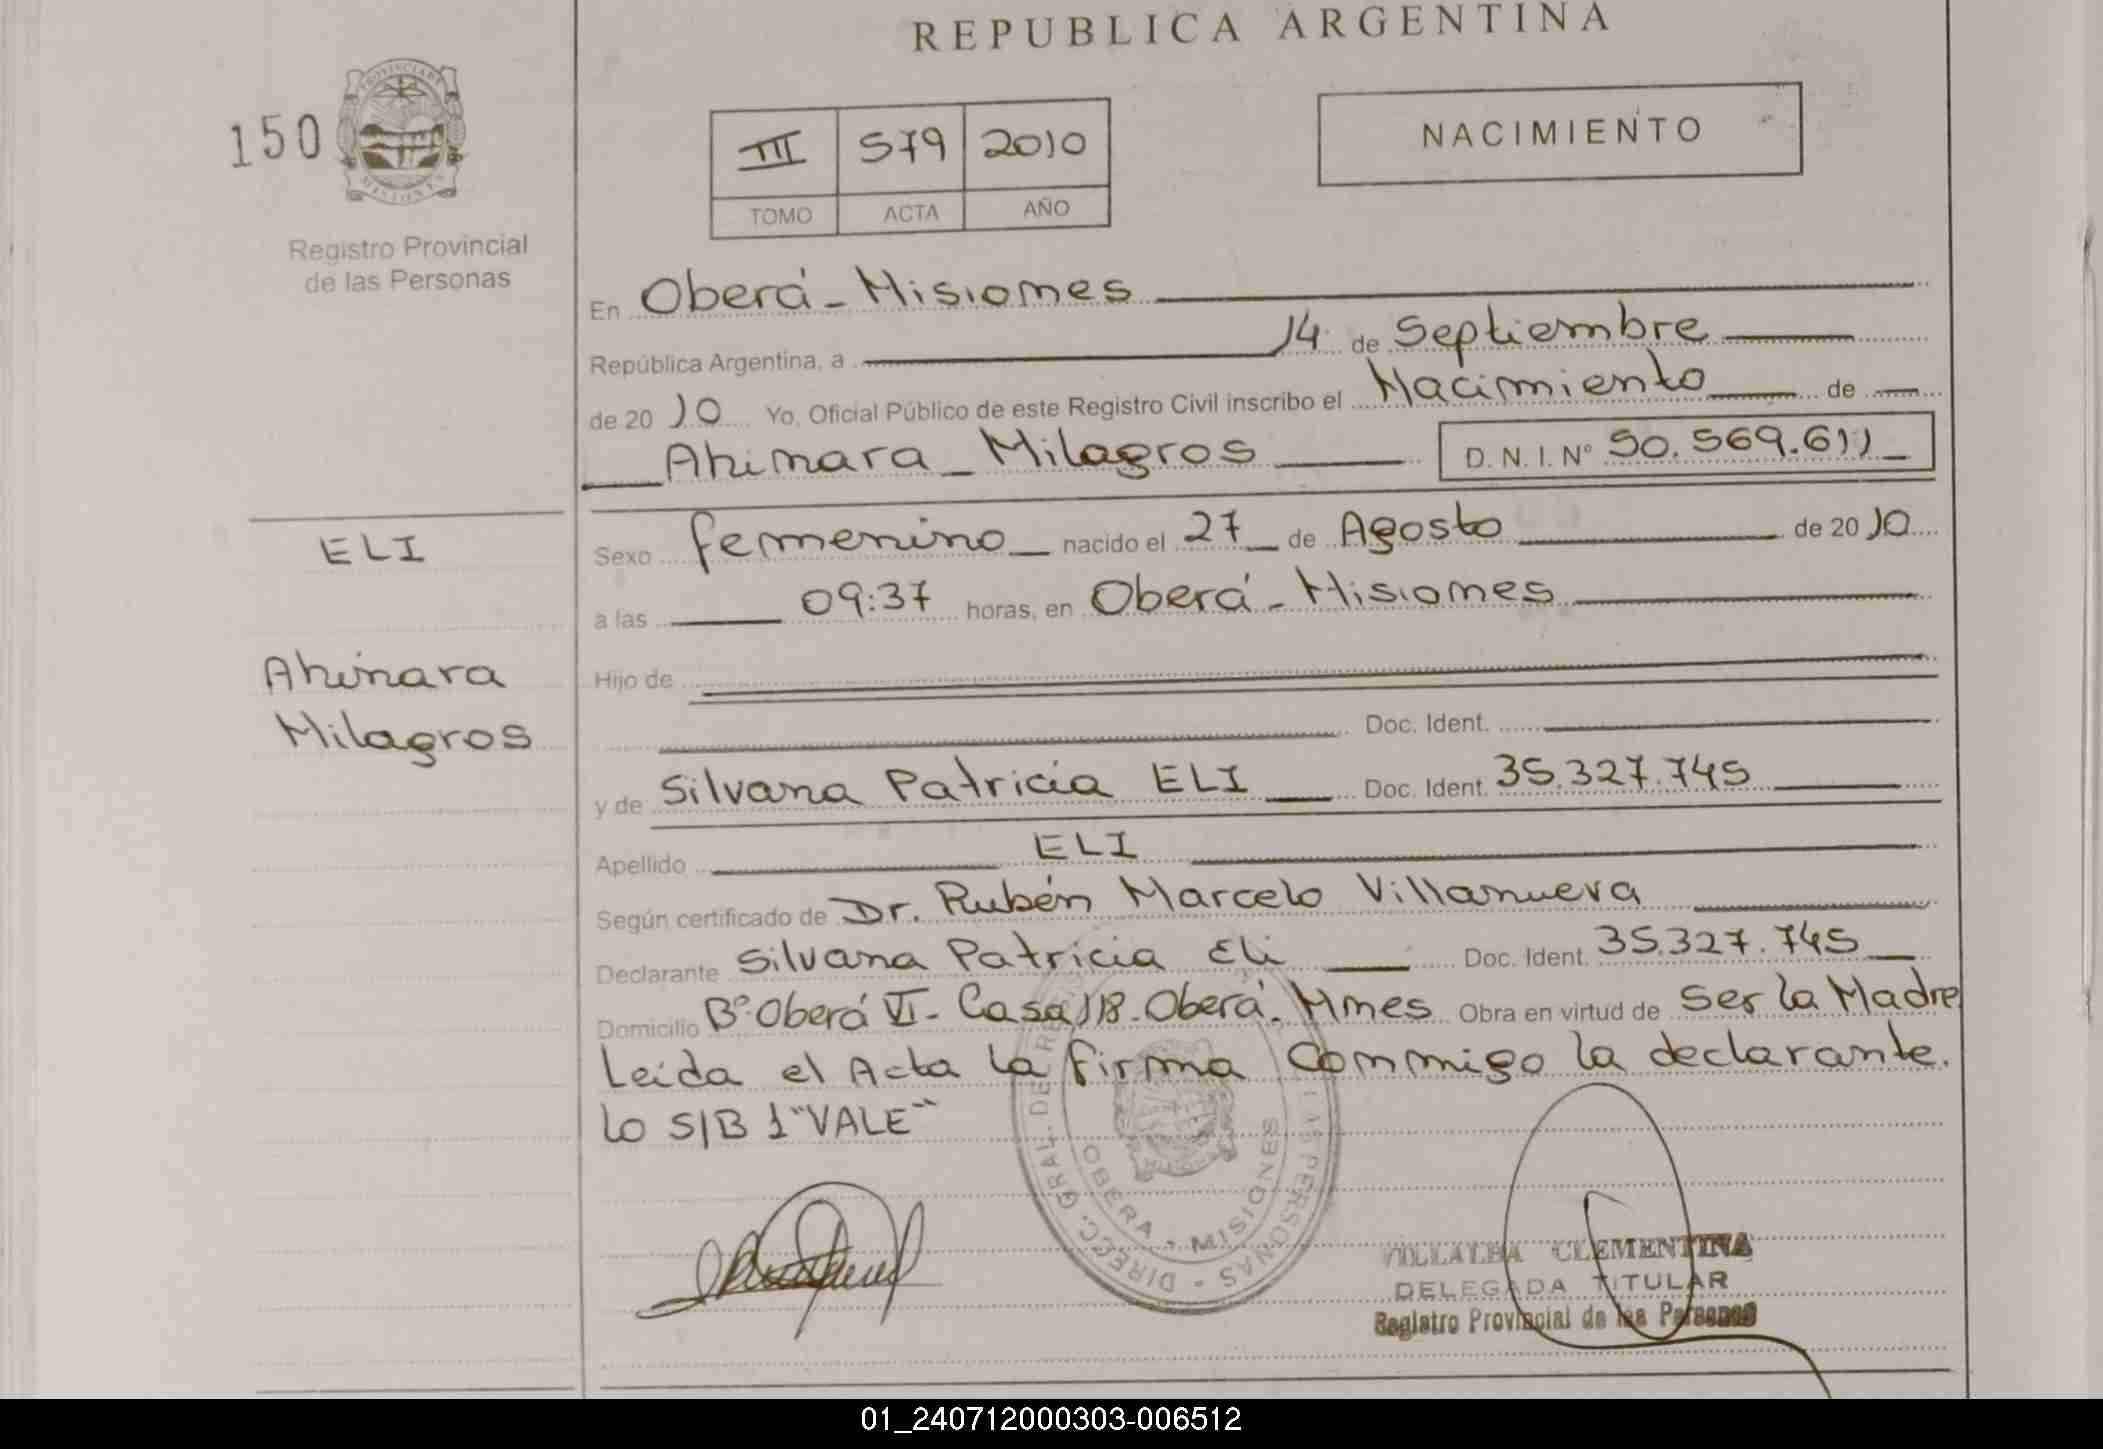 REPUBLICA ARGENTINA
150
PROVINCIA DE
MISIONES
Registro Provincial
de las Personas
III 579 2010
TOMO ACTA AÑO
NACIMIENTO
En Oberá - Misiones
República Argentina, a 14 de Septiembre
de 2010 Yo, Oficial Público de este Registro Civil inscribo el Nacimiento de
Ahinara Milagros D. N. I. Nº 50.569.611
ELI
Ahinara
Milagros
Sexo femenino nacido el 27 de Agosto de 2010
a las 09:37 horas, en Oberá - Misiones
Hijo de
Doc. Ident.
y de Silvana Patricia ELI Doc. Ident. 35.327.745
Apellido ELI
Según certificado de Dr. Rubén Marcelo Villanueva
Declarante Silvana Patricia Eli Doc. Ident. 35.327.745
Domicilio Bº Oberá VI - Casa 118. Oberá. Mnes Obra en virtud de Ser la Madre
Leída el Acta la firma Conmigo la declarante.
lo S/B 1 "VALE"
DIRECC. GRAL. DE LAS PERSONAS
OBERA - MISIONES
VILLALBA CLEMENTINA
DELEGADA TITULAR
Registro Provincial de las Personas
01_240712000303-006512